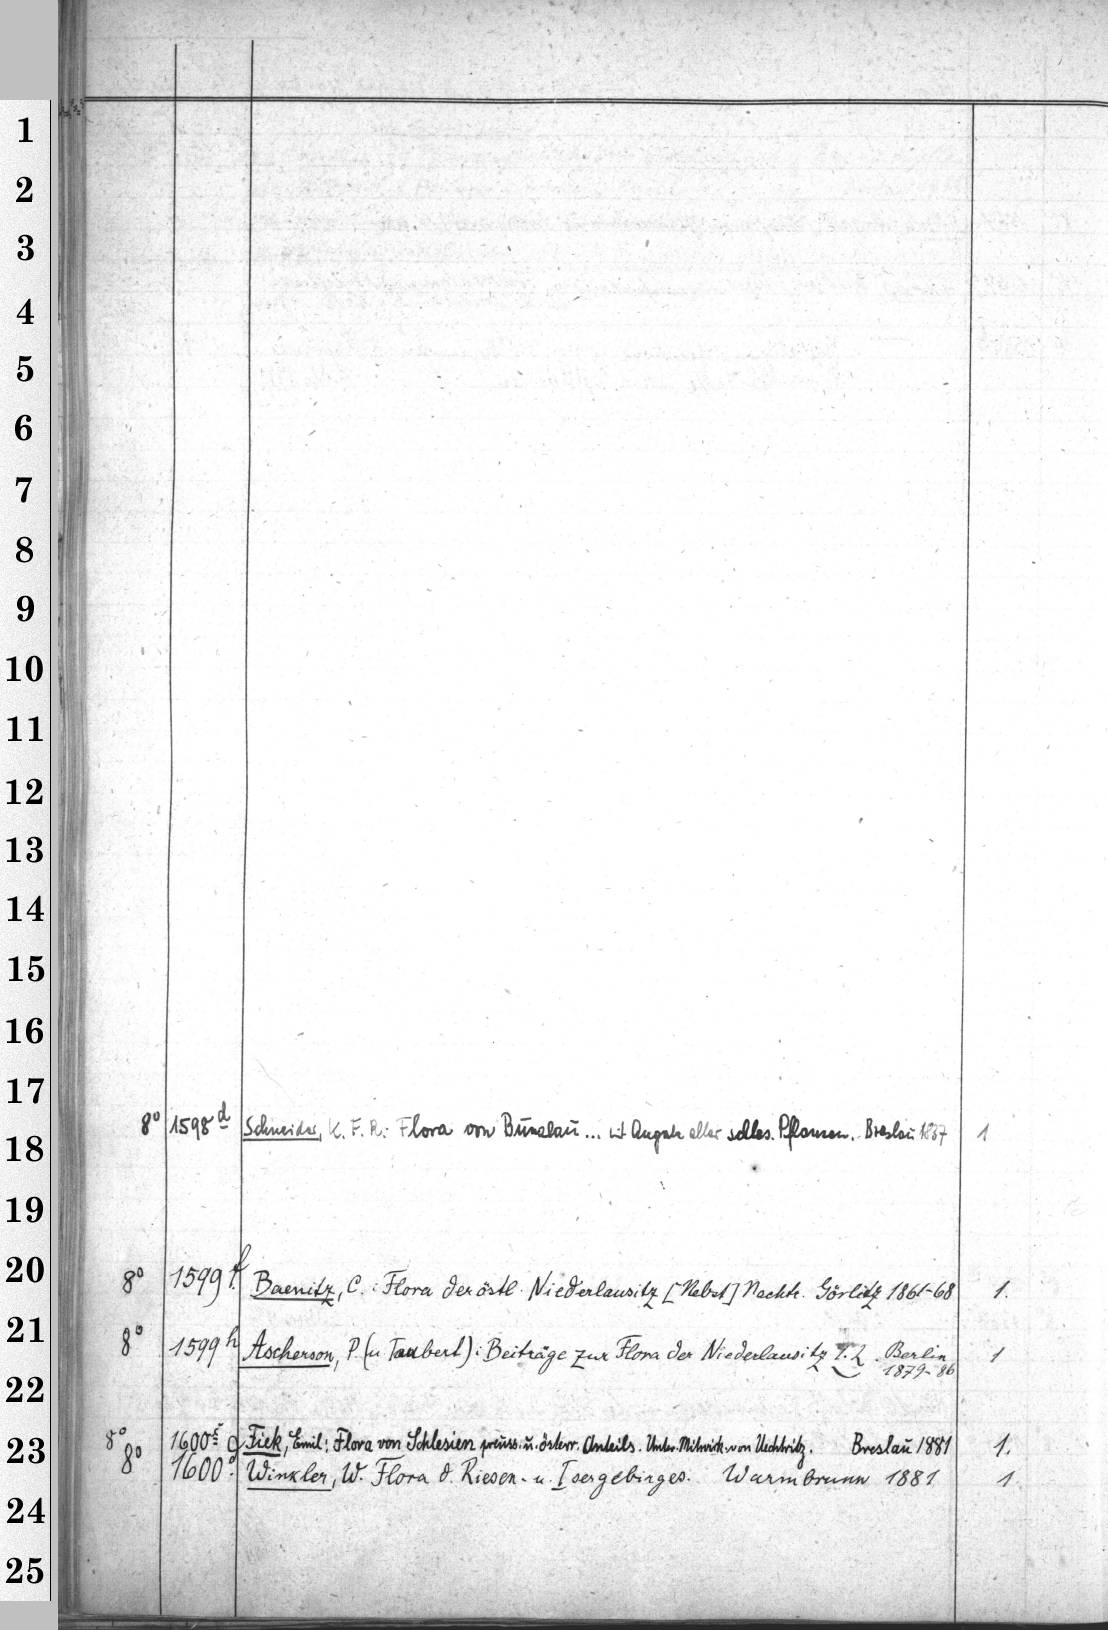 1
2
3
4
5
6
7
8
9
10
11
12
13
14
15
16
17
18
19
20
21
22
23
24
25
8° 1598 d Schneider, K. F. R.: Flora von Bunzlau ... mit Angabe aller schles. Pflanzen. Breslau 1837 1
8° 1599 f. Baenitz, C.: Flora der östl. Niederlausitz [Nebst] Nachtr. Görlitz 1861-68 1.
8° 1599 h Ascherson, P. (u Taubert): Beiträge zur Flora der Niederlausitz Berlin 1
1879-86
8° 1600 Fiek, Emil: Flora von Schlesien preuss. u. österr. Anteils. Unter Mitwirk. von Uechtritz. Breslau 1881 1.
8° 1600 g. Winkler, W. Flora d. Riesen- u. Isergebirges. Warmbrunn 1881 1